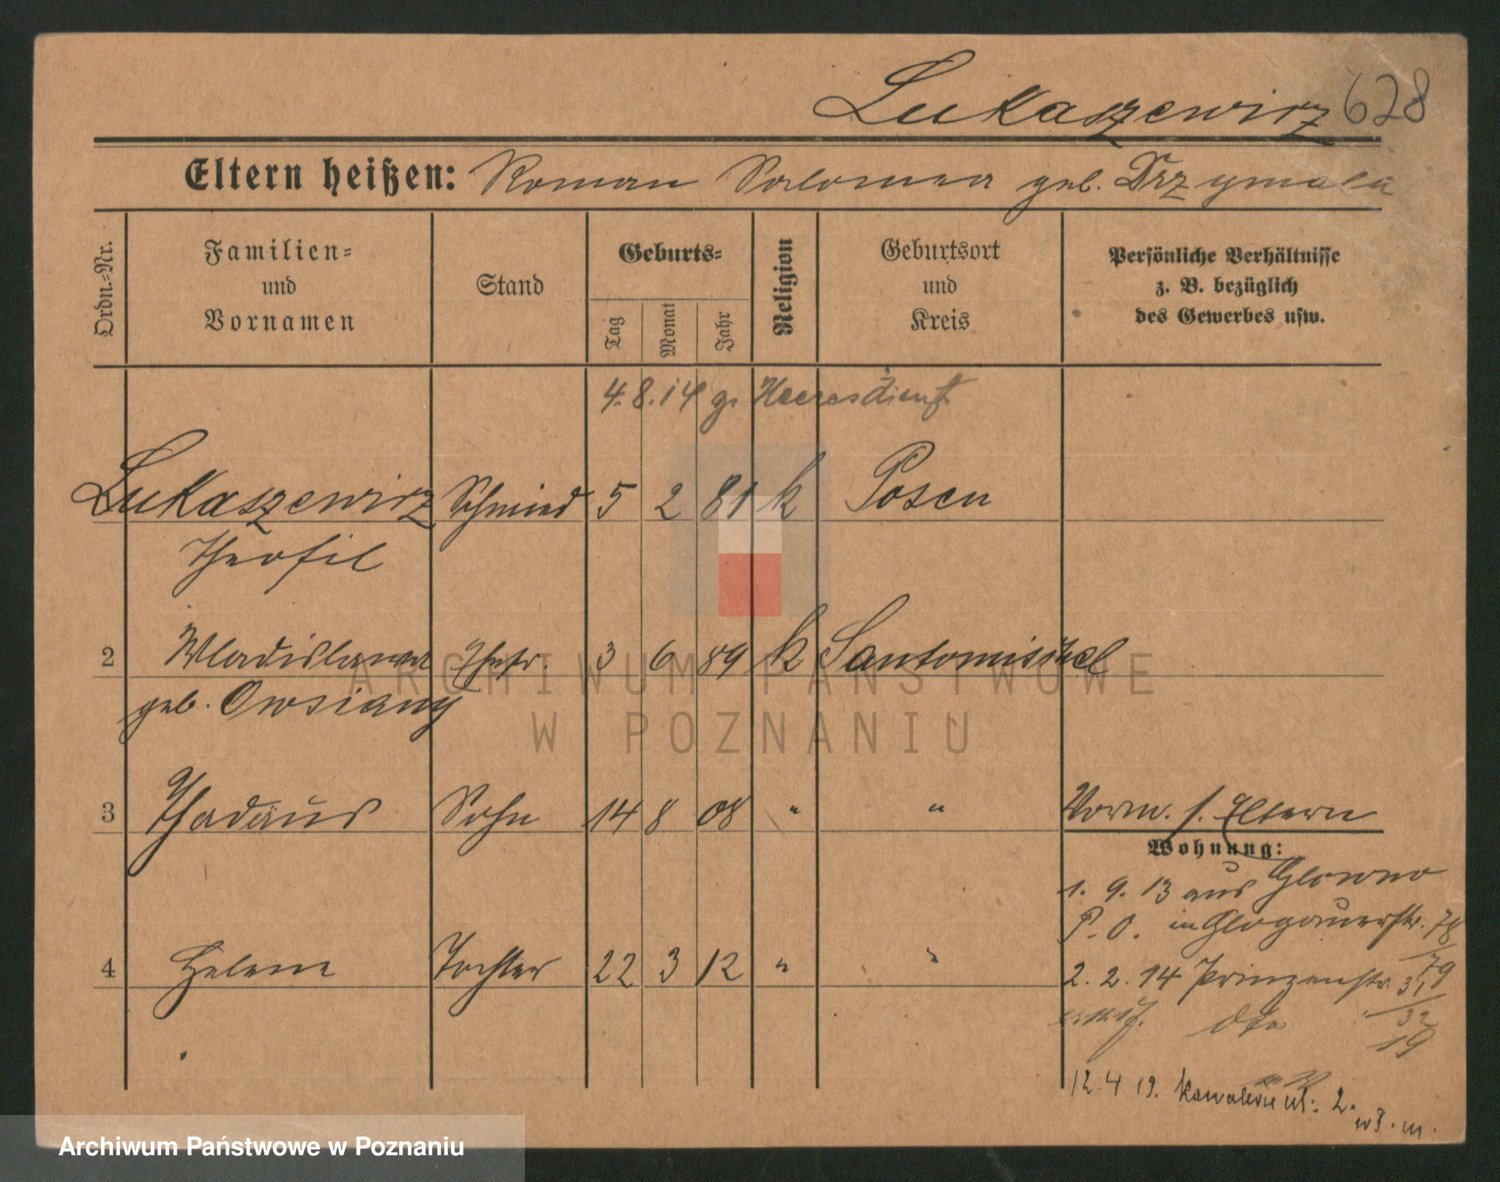 Lukaszewicz 628
Eltern heißen: Roman Salomea geb. Drzymala
Ordn.-Nr.
Familien-
und
Vornamen
Stand
Geburts-
Tag
Monat
Jahr
Religion
Geburtsort
und
Kreis
Persönliche Verhältnisse
z. B. bezüglich
des Gewerbes usw.
4.8.14 z. Heeresdienst
Lukaszewicz Schmied 5 2 81 k Posen
Theofil
2 Wladislawa Ehefr. 3 6 89 k Santomischel
geb. Owsiany
3 Thadäus Sohn 14 8 08 " " Vorm. s. Eltern
Wohnung:
1. 9. 13 aus Glowno
P. O. in Glogauerstr. 78/79
4 Helene Tochter 22 3 12 " "
2. 2. 14 Prinzenstr. 31/32
dto 19
12. 4 19. Kanałowa ul: 2.
w P. m.
ARCHIWUM PAŃSTWOWE
W POZNANIU
Archiwum Państwowe w Poznaniu